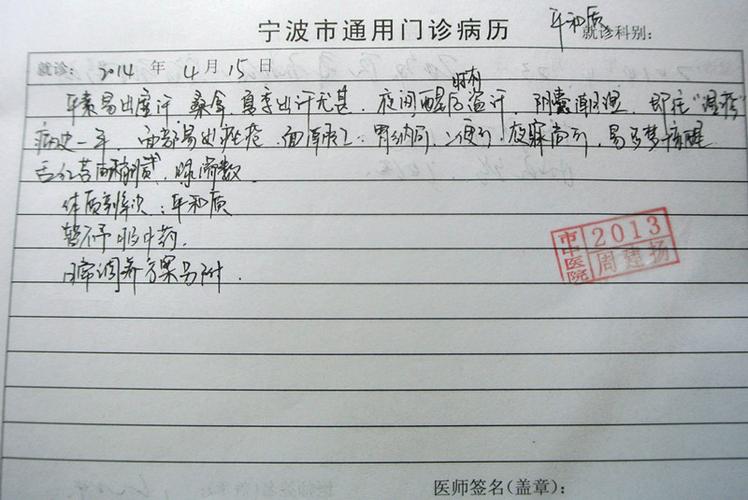 宁波市通用门诊病历
平和质
就诊科别:
就诊: 2014 年 4 月 15 日
时有
平素易出虚汗 夏季出汗尤甚, 夜间醒后溢汗 阴囊潮湿, 既往"湿疹"
病史一年, 面部易出痤疮, 胃纳可, 二便可, 夜寐尚可, 易多梦
舌红苔, 脉滑数
体质辨识: 平和质
暂不予服中药.
日常调养方案另附.
市中医院
2013
周建扬
医师签名(盖章):